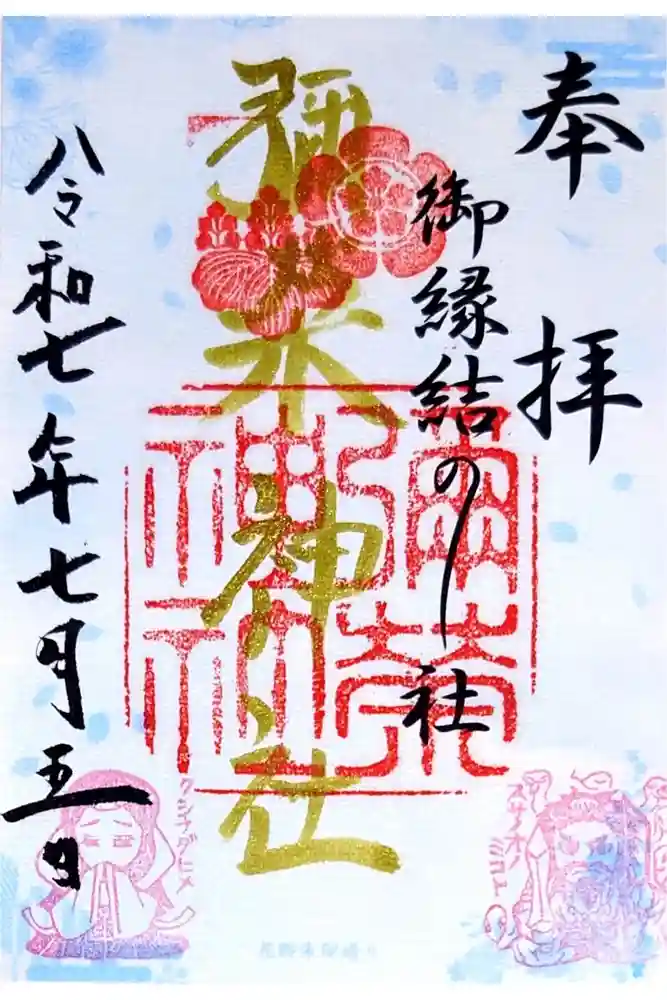 奉拝
御縁結の社
彌栄神社
彌榮神社
八令和七年七月五日
スサノオノミコト
クシナダヒメ